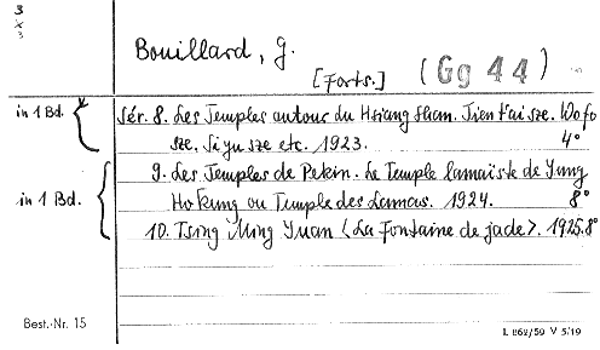 3
x
3
Bouillard, G.
[Forts.] (Gg 44)
in 1 Bd. Sér. 8. Les Temples autour du Hsiang Shan. Tien t'ai sze. Wo fo
sze. Si yu sze etc. 1923. 4°
9. Les Temples de Pekin. Le Temple lamaïste de Yung
in 1 Bd. Ho Kung ou Temple des Lamas. 1924. 8°
10. Tsing Ming Yuan <La Fontaine de jade>. 1925. 8°
Best.-Nr. 15
L 862/59 V 5/19